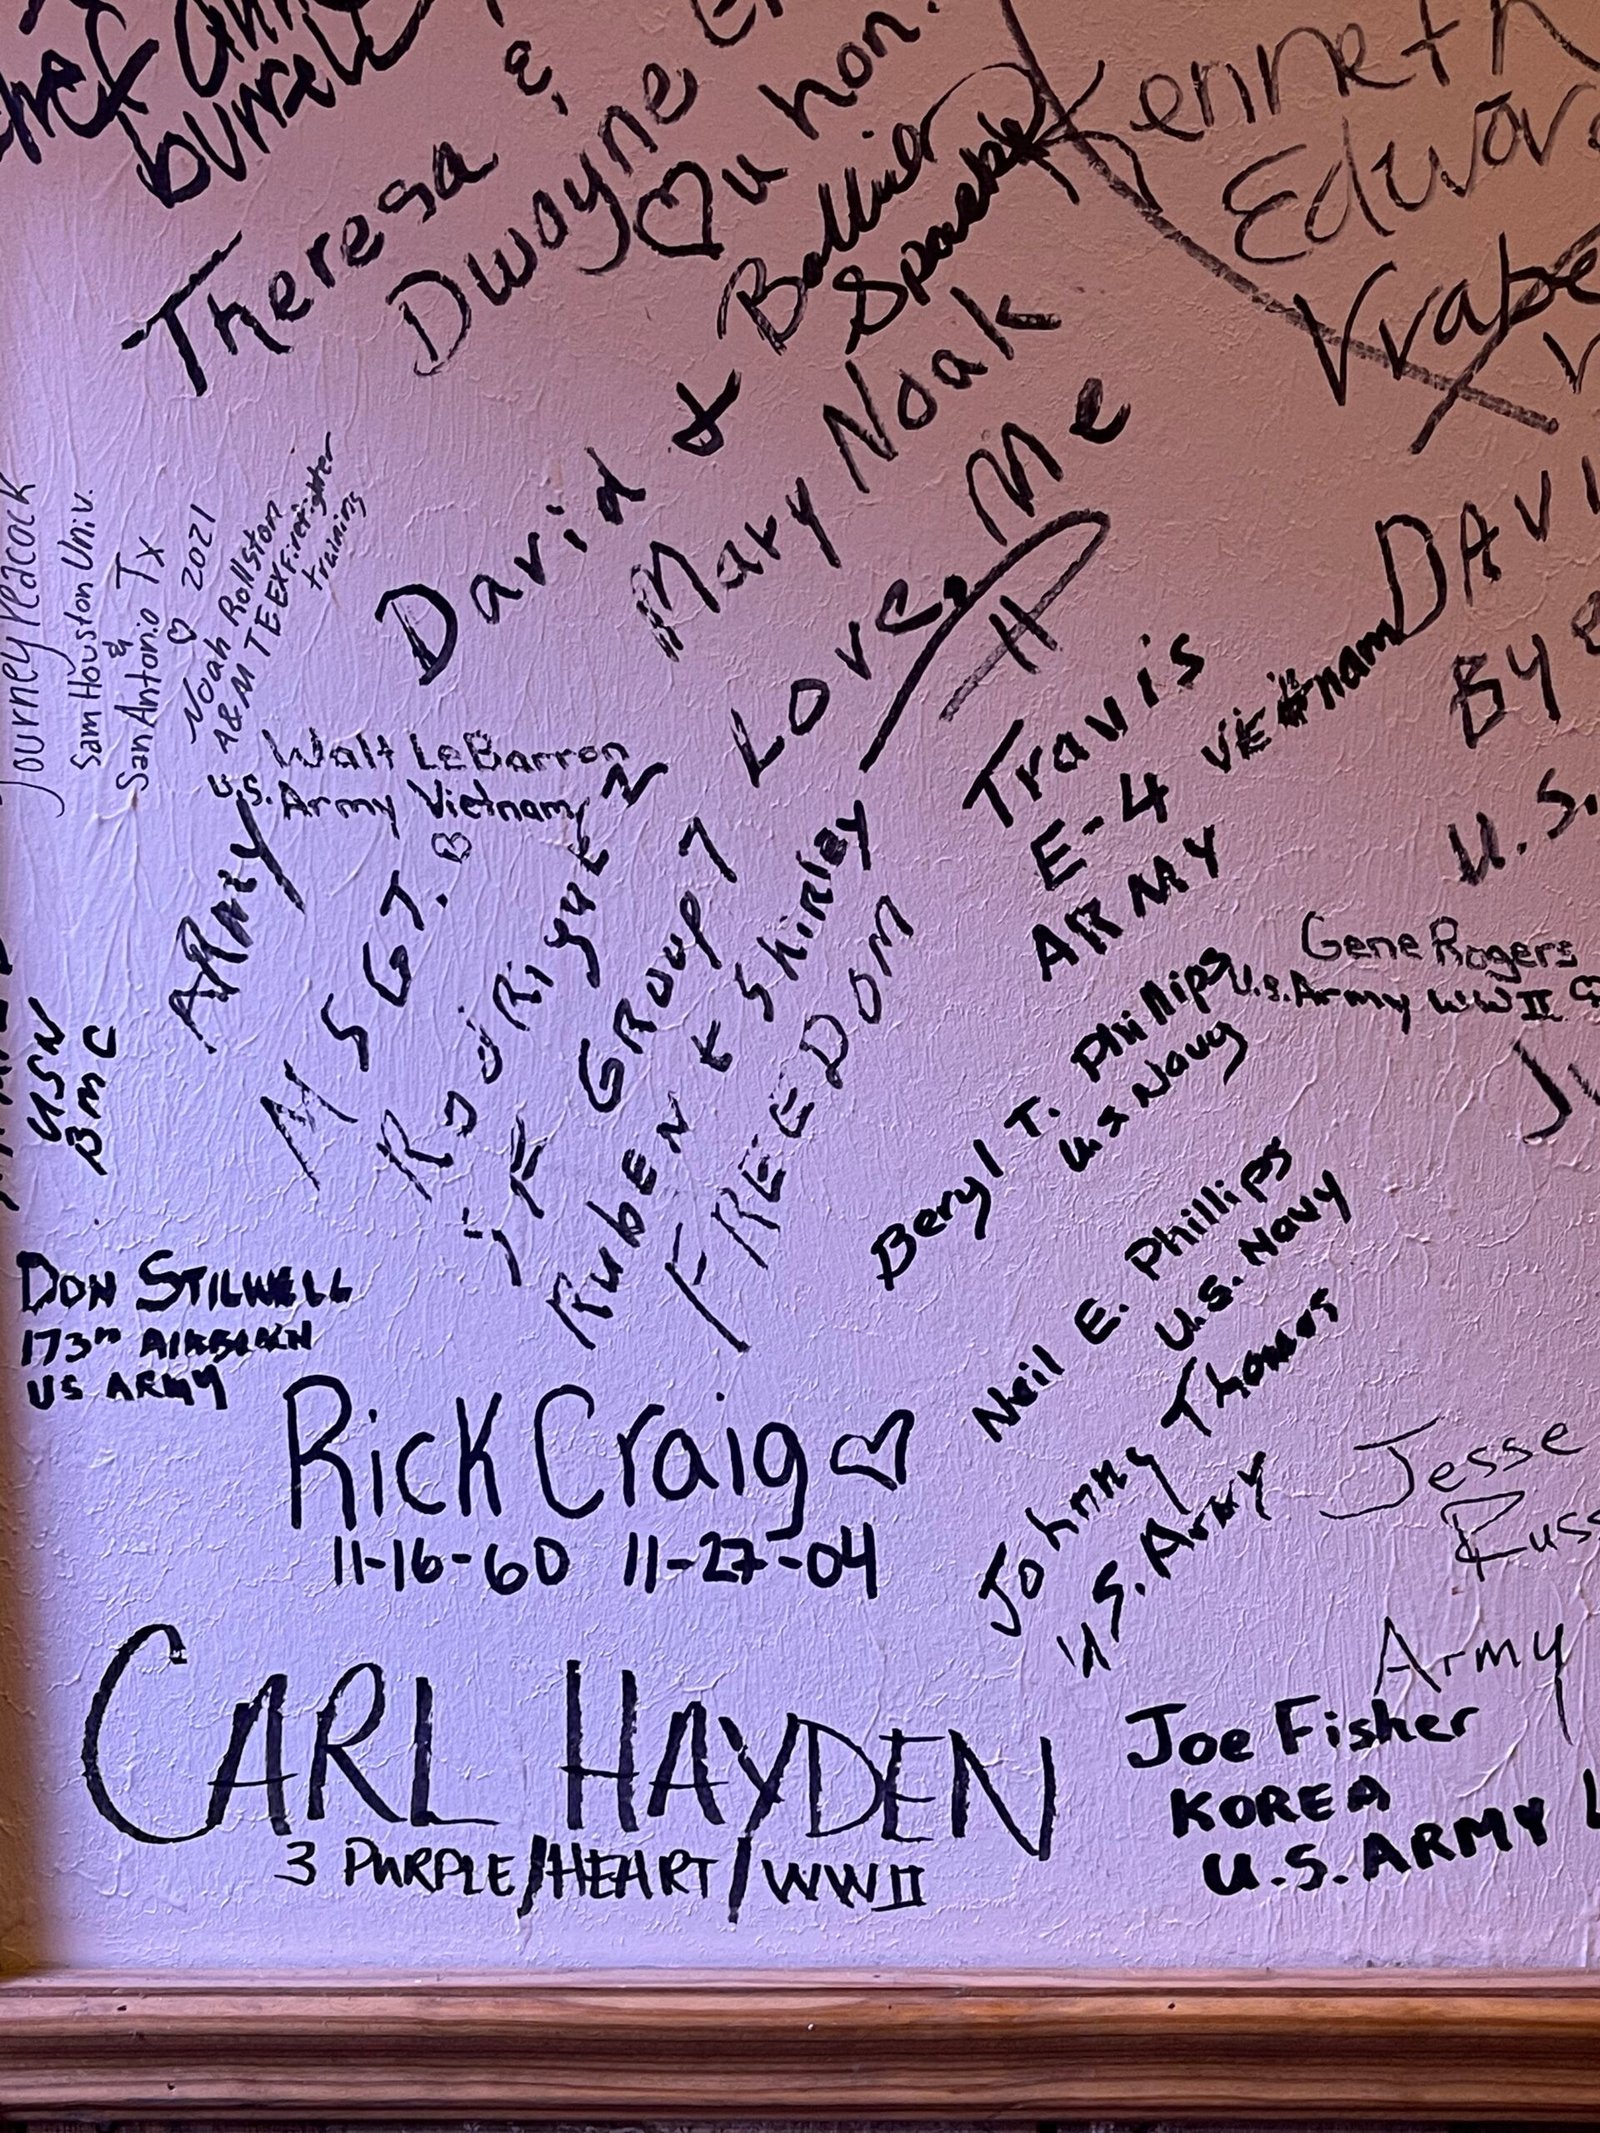 Theresa
&
Dwayne
♡ u hon.
Kenneth
David &
Mary Noak
Love, Me
Journey Peacock
Sam Houston Univ.
&
San Antonio Tx
♡ 2021
Noah Rollston
A&M TEEX Firefighter
training
Walt LeBarron
U.S. Army Vietnam
♡
Travis
E-4
ARMY
VIEtnam
By
U.S.
Gene Rogers
U.S. Army WW II ♡
ARMY
MSGT.
GROUP 7
RubEN & ShiRlEy
FREEDOM
USN
BMC
Beryl T. Phillips
us Navy
Neil E. Phillips
U.S. Navy
Johnny Thomas
U.S. ARMY
DON STILWELL
173RD AIRBORN
US ARMY
Rick Craig ♡
11-16-60 11-27-04
Jesse
Army
CARL HAYDEN
3 PURPLE/HEART/WWII
Joe Fisher
KOREA
U.S. ARMY